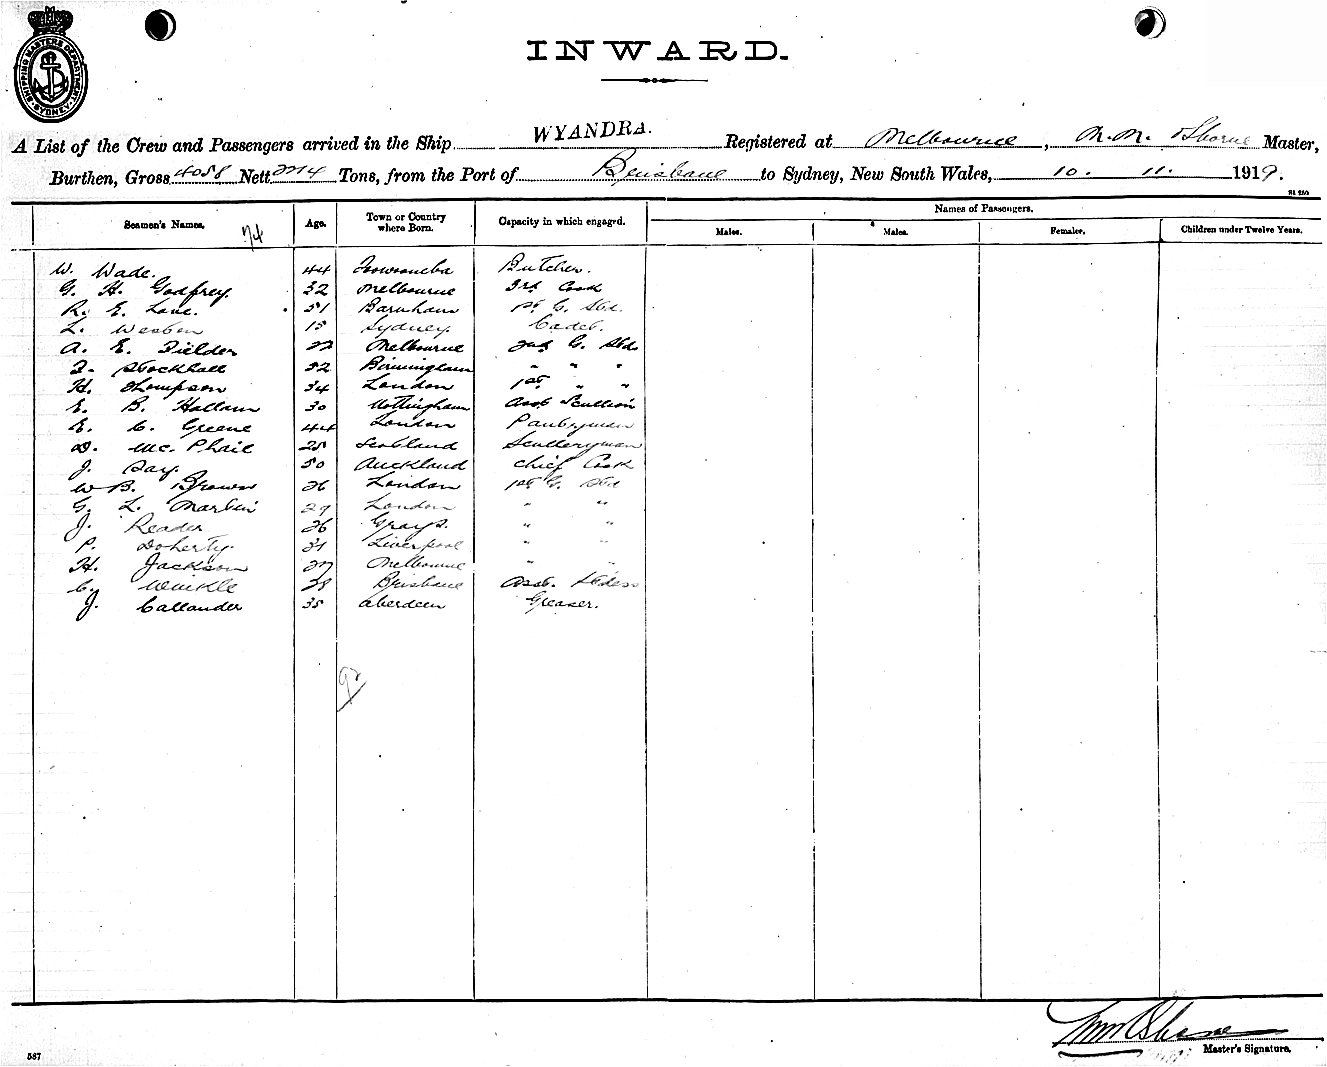 SHIPPING MASTERS DEPARTMENT SYDNEY
INWARD.
A List of the Crew and Passengers arrived in the Ship WYANDRA. Registered at Melbourne, Master,
Burthen, Gross 4058 Nett Tons, from the Port of Brisbane to Sydney, New South Wales, 10. 11. 1919.
Names of Passengers.
Seamen's Names. 74 Age. Town or Country where Born. Capacity in which engaged. Males. Males. Females. Children under Twelve Years.
W. Wade. 44 Toowoomba Butcher.
G. H. Godfrey. 32 Melbourne 3rd Cook
R. E. Love. 51 Barnham 1st G. Std.
L. 15 Sydney. Cadet.
A. E. Fielder 22 Melbourne 2nd G. Stds
Stockhall 32 Birmingham " " "
H. Thompson 34 London 1st " "
E. B. Hallam 30 Nottingham Asst Scullion
E. C. Greene 44 London Pantryman
D. Mc. Phail 25 Scotland Sculleryman
J. Day. 50 Auckland Chief Cook
W B. Brown 26 London 1st G. Std
G. L. Martin 29 London " "
J. Reader 26 Grays. " "
P. Doherty. 31 Liverpool " "
H. Jackson 27 Melbourne " "
C. Winkle 38 Brisbane Asst. Stdess
J. Callander 35 Aberdeen Greaser.
92
Master's Signature.
587